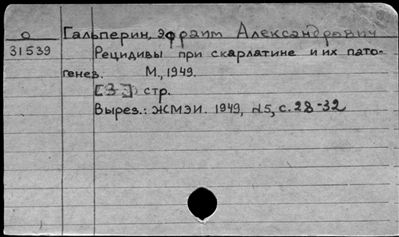 О Гальперин, Эфраим Александрович
31539 Рецидивы при скарлатине и их пато-
генез. М., 1949.
[3] стр.
Вырез.: ЖМЭИ. 1949, №5, с. 28-32